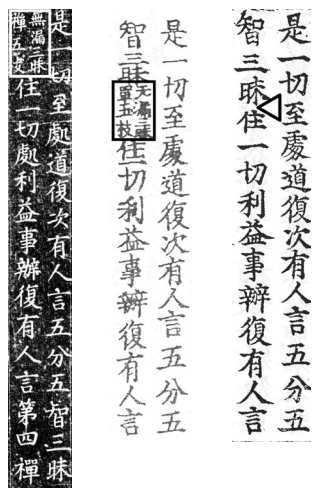 是一切至處道復次有人言五分五
智三昧住一切利益事辦復有人言
是一切至處道復次有人言五分五
智三昧
无漏三昧
單五枝
住一切利益事辦復有人言
是一切至處道復次有人言五分五智三昧
無漏三昧
禪五支
住一切處利益事辦復有人言第四禪